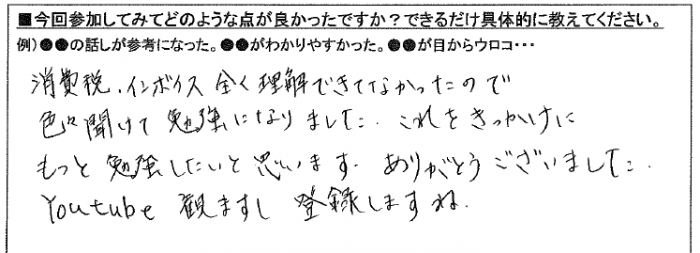 ■今回参加してみてどのような点が良かったですか？できるだけ具体的に教えてください。
例）●●の話しが参考になった。●●がわかりやすかった。●●が目からウロコ・・・
消費税．インボイス 全く理解できてなかったので
色々聞けて 勉強になりました．これをきっかけに
もっと 勉強したいと思います．ありがとうございました．
Youtube 観ますし 登録しますね．